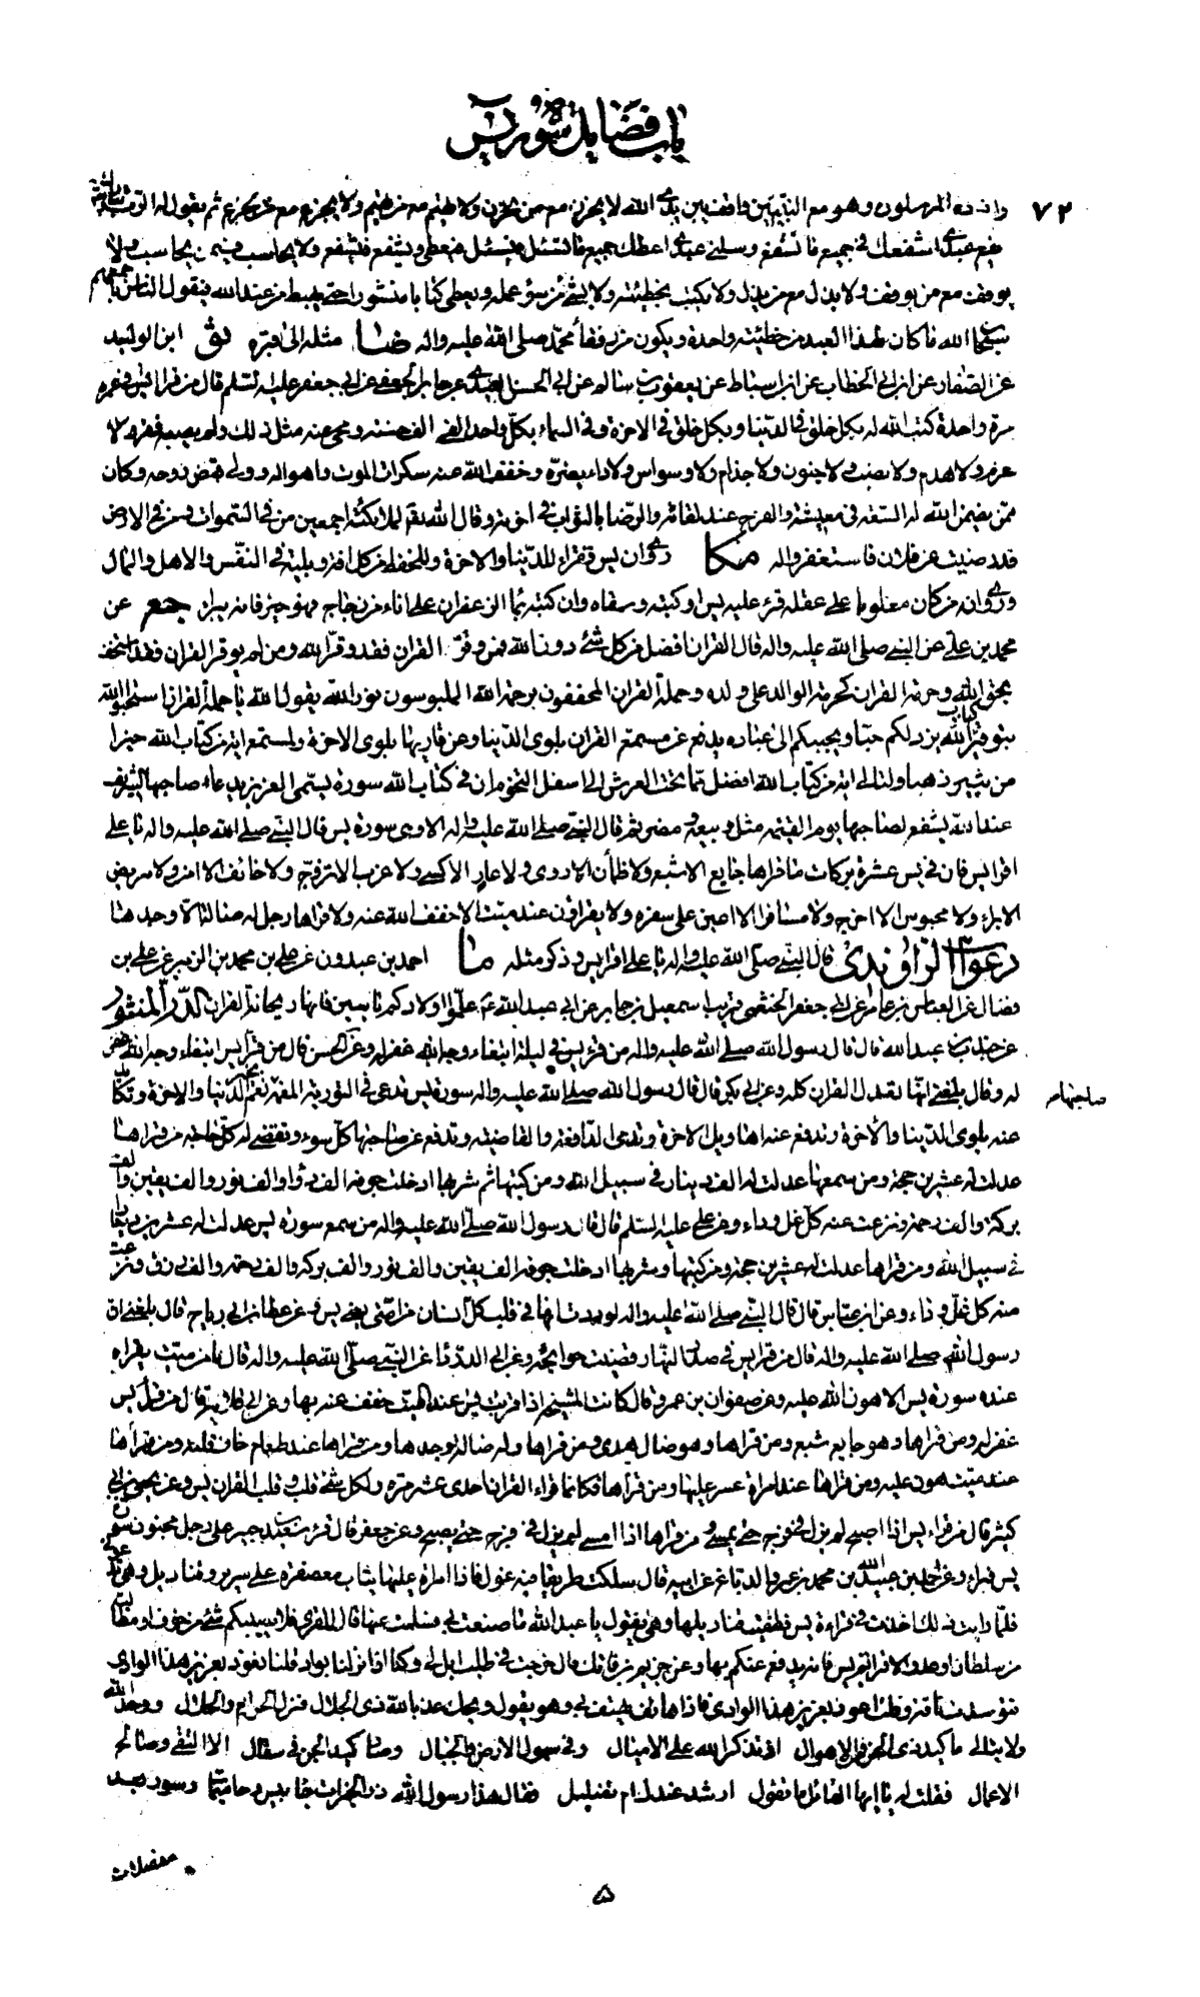 باب فضايل سورة يس
٧٢
وانبيائه المرسلون وهو مع النبيين واقف بين يدي الله لا يحزن مع من يحزن ولا يهتم مع من يهتم ولا يجزع مع من يجزع ثم يقول له الرب تبارك وتعالى
اشفع عبدي اشفعك في جميع ما تشفع وسلني عبدي اعطك جميع ما تسئل فيسئل فيعطى ويشفع فيشفع ولا يحاسب فيمن يحاسب ولا
يوقف مع من يوقف ولا يذل مع من يذل ولا يكتب بخطيئته ولا بشئ من سوء عمله ويعطى كتابا منشورا حتى يهبط من عند الله فيقول الناس باجمعهم
سبحان الله ما كان لهذا العبد من خطيئة واحدة ويكون من رفقاء محمد صلى الله عليه واله مثله الى قوله ثو ابن الوليد
عن الصفار عن ابن ابي الخطاب عن ابن اسباط عن يعقوب بن سالم عن ابي الحسن العبدي عن جابر الجعفي عن ابي جعفر عليه السلم قال من قرأ يس في عمره
مرة واحدة كتب الله له بكل خلق في الدنيا وبكل خلق في الاخرة وفي السماء بكل واحد الفي الف حسنة ومحى عنه مثل ذلك ولم يصبه فقر ولا
غرم ولا هدم ولا نصب ولا جنون ولا جذام ولا وسواس ولا داء يضره وخفف الله عنه سكرات الموت واهواله وولي قبض روحه وكان
ممن يضمن الله له السعة في معيشته والفرح عند لقائه والرضا بالثواب في اخرته وقال الله تعالى لملائكته اجمعين من في السموات ومن في الارض
قد رضيت عن فلان فاستغفروا له مكا روي ان يس تقرأ للدنيا والاخرة وللحفظ من كل افة وبلية في النفس والاهل والمال
وروي انه من كان مغلوبا على عقله قرئ عليه يس او كتبه وسقاه وان كتبه بماء الزعفران على اناء من زجاج فهو خير فانه يبرأ جع عن
محمد بن علي عن النبي صلى الله عليه واله قال القران افضل من كل شئ دون الله فمن وقر القران فقد وقر الله ومن لم يوقر القران فقد استخف
بحق الله وحرمة القران كحرمة الوالد على ولده وحملة القران المحفوفون برحمة الله الملبوسون نور الله يقول الله يا حملة القران استحبوا الله
بتوقير كتاب الله يزدلكم حبا ويحببكم الى عباده يدفع عن مستمع القران بلوى الدنيا وعن قاريها بلوى الاخرة ولمستمع اية من كتاب الله خير ا
من ثبير ذهبا ولتالي اية من كتاب الله افضل مما تحت العرش الى اسفل التخوم ان في كتاب الله سورة يسمى العزيز يدعى صاحبها الشريف
عند الله يشفع لصاحبها يوم القيمة مثل ربيعة ومضر ثم قال النبي صلى الله عليه واله الا وهي سورة يس قال النبي صلى الله عليه واله يا علي
اقرأ يس فان في يس عشرة بركات ما قرأها جايع الا شبع ولا ظمأن الا روى ولا عار الا كسي ولا عزب الا تزوج ولا خائف الا امن ولا مريض
الا برء ولا محبوس الا اخرج ولا مسافر الا اعين على سفره ولا يقرأون عند ميت الا خفف الله عنه ولا قرأها رجل له ضالة الا وجدها
دعوات الراوندى قال النبي صلى الله عليه واله يا علي اقرأ يس وذكر مثله ما احمد بن عبدون عن علي بن محمد بن الزبير عن علي بن
فضال عن العباس بن عامر عن ابي جعفر الخثعمي قريب اسمعيل بن جابر عن ابي عبد الله ع علموا اولادكم ياسين فانها ريحانة القران الدر المنثور
عن جندب بن عبد الله قال قال رسول الله صلى الله عليه واله من قرأ يس في ليلة ابتغاء وجه الله غفر له وعن الحسن قال من قرأ يس ابتغاء وجه الله غفر
له وقال بلغني انها تعدل القران كله وعن ابي بكر قال قال رسول الله صلى الله عليه واله سورة يس تدعى في التورية المعمة تعم صاحبها بخير الدنيا والاخرة وتكابد
عنه بلوى الدنيا والاخرة وتدفع عنه اهاويل الاخرة وتدعى الدافعة والقاضية وتدفع عن صاحبها كل سوء وتقضى له كل حاجة من قرأها
عدلت له عشرين حجة ومن سمعها عدلت له الف دينار في سبيل الله ومن كتبها ثم شربها ادخلت جوفه الف دواء والف نور والف يقين والف
بركة والف رحمة ونزعت عنه كل غل وداء وعن علي عليه السلم قال قال رسول الله صلى الله عليه واله من سمع سورة يس عدلت له عشرين دينارا
في سبيل الله ومن قرأها عدلت له عشرين حجة ومن كتبها وشربها ادخلت جوفه الف يقين والف نور والف بركة والف رحمة والف رزق ونزعت
منه كل غل وداء وعن ابن عباس قال قال النبي صلى الله عليه واله لوددت انها في قلب كل انسان من امتي يعني يس وعن عطا بن ابي رباح قال بلغني ان
رسول الله صلى الله عليه واله قال من قرأ يس في صدر النهار قضيت حوائجه وعن ابي الدرداء عن النبي صلى الله عليه واله قال ما من ميت يقرأ
عنده سورة يس الا هون الله عليه وعن صفوان بن عمرو قال كانت المشيخة اذا قرئت يس عند الميت خفف عنه بها وعن ابي قلابة قال من قرأ يس
غفر له ومن قرأها وهو جايع شبع ومن قرأها وهو ضال هدي ومن قرأها وله ضالة وجدها ومن قرأها عند طعام خاف قلته ومن قرأها
عند ميت هون عليه ومن قرأها عند امرأة عسر عليها ومن قرأها فكانما قرأ القران احدى عشر مرة ولكل شئ قلب وقلب القران يس وعن يحيى بن ابي
كثير قال من قرأ يس اذا اصبح لم يزل في فرح حتى يمسي ومن قرأها اذا امسى لم يزل في فرح حتى يصبح وعن جعفر قال قرأ سعيد بن جبير على رجل مجنون سورة
يس فبرأ وعن بن عبيد الله بن محمد بن عمر والدباغ عن ابيه قال سلكت طريقا فيه غول فاذا امرأة عليها ثياب معصفرة على سرير وقناديل وهي تدعوني
فلما رايت ذلك اخذت في قراءة يس فطفيت قناديلها وهي يقول يا عبد الله ما صنعت بي فسلمت عنها قال المقري فلا يصيبكم شئ من خوف او مطالبة
من سلطان او عدو الا قرأتم يس فانه يدفع عنكم بها وعن خريم بن فاتك قال خرجت في طلب ابل لي وكنا اذا نزلنا بواد قلنا نعوذ بعزيز هذا الوادي
فتوسدت ناقتي وقلت اعوذ بعزيز هذا الوادي فاذا هاتف يهتف بي وهو يقول ويحك عذ بالله ذي الجلال منزل الحرام والحلال ووحد الله
ولا تبالي ما كيد ذي الجن من الاهوال اذ تذكر الله على الاميال وفي سهول الارض والجبال وصار كيد الجن في سفال الا التقى وصالح
الاعمال فقلت له يا ايها القائل ما تقول ارشد عندك ام تضليل فقال هذا رسول الله ذو الخيرات جاء بيس وحاميمات وسور بعد
مفصلات
٥